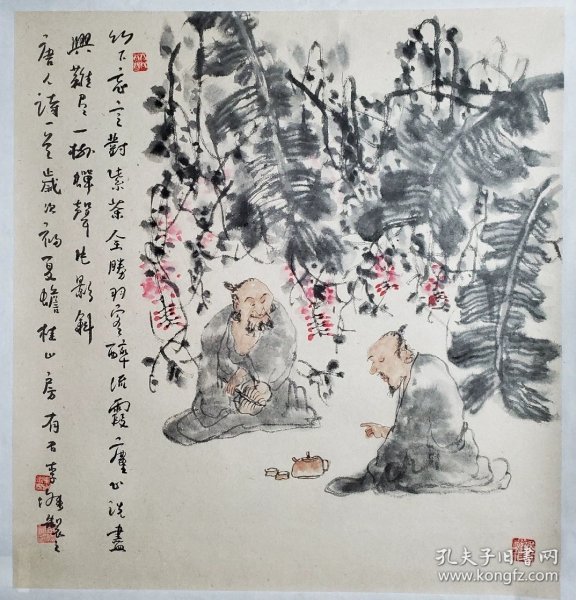 竹下忘言對紫茶全勝羽客醉流霞塵心洗盡
興難尽一樹蟬聲片影斜
唐人詩一首歲次夏蟾桂山房李製
孔夫子旧书网
www.kongfz.com